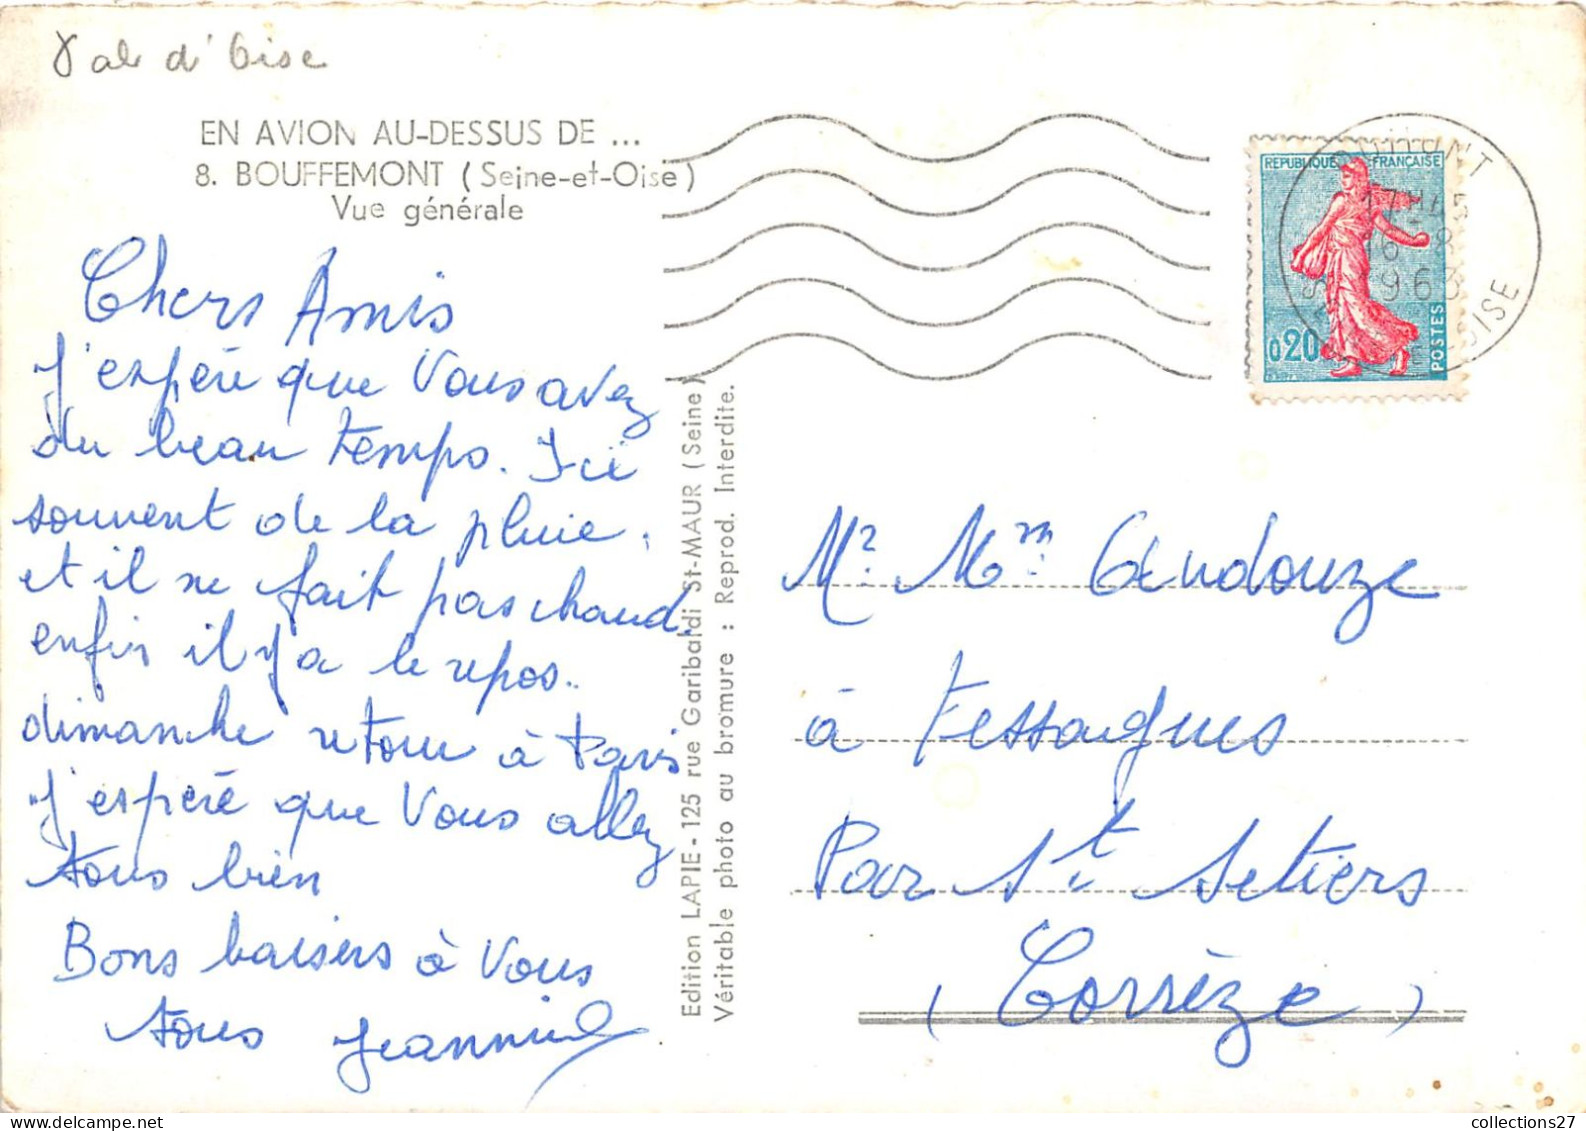 Val d'Oise
EN AVION AU-DESSUS DE ...
8. BOUFFEMONT (Seine-et-Oise)
Vue générale
Chers Amis
J'espère que Vous avez
du beau temps. Ici
souvent de la pluie,
et il ne fait pas chaud.
enfin il y a le repos..
dimanche retour à Paris
J'espère que Vous allez
tous bien
Bons baisers à Vous
tous
Edition LAPIE - 125 rue Garibaldi St-MAUR (Seine)
Véritable photo au bromure : Reprod. Interdite.
REPUBLIQUE FRANÇAISE
0,20
POSTES
1963
OISE
Mr Mme Gendouze
à Tessagues
Par St Setiers
(Corrèze)
collections27